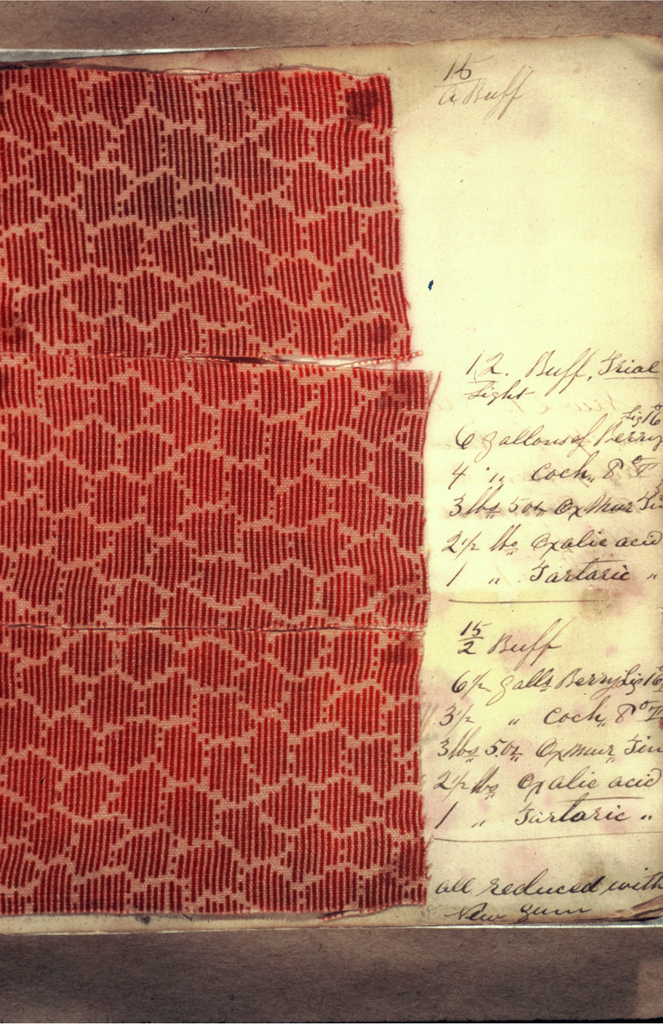 15
a Buff
12. Buff, Trial
Light
6 gallons of Berry Liq 16
4 " Coch,, 8° T
3 lbs 5 oz Ox Mur Tin
2 1/2 lbs Oxalic acid
1 " Tartaric "
15
2 Buff
6 1/2 galls Berry Liq 16
3 1/2 " Coch,, 8° T
3 lbs 5 oz Ox Mur Tin
2 1/2 lbs Oxalic acid
1 " Tartaric "
all reduced with
New Gum